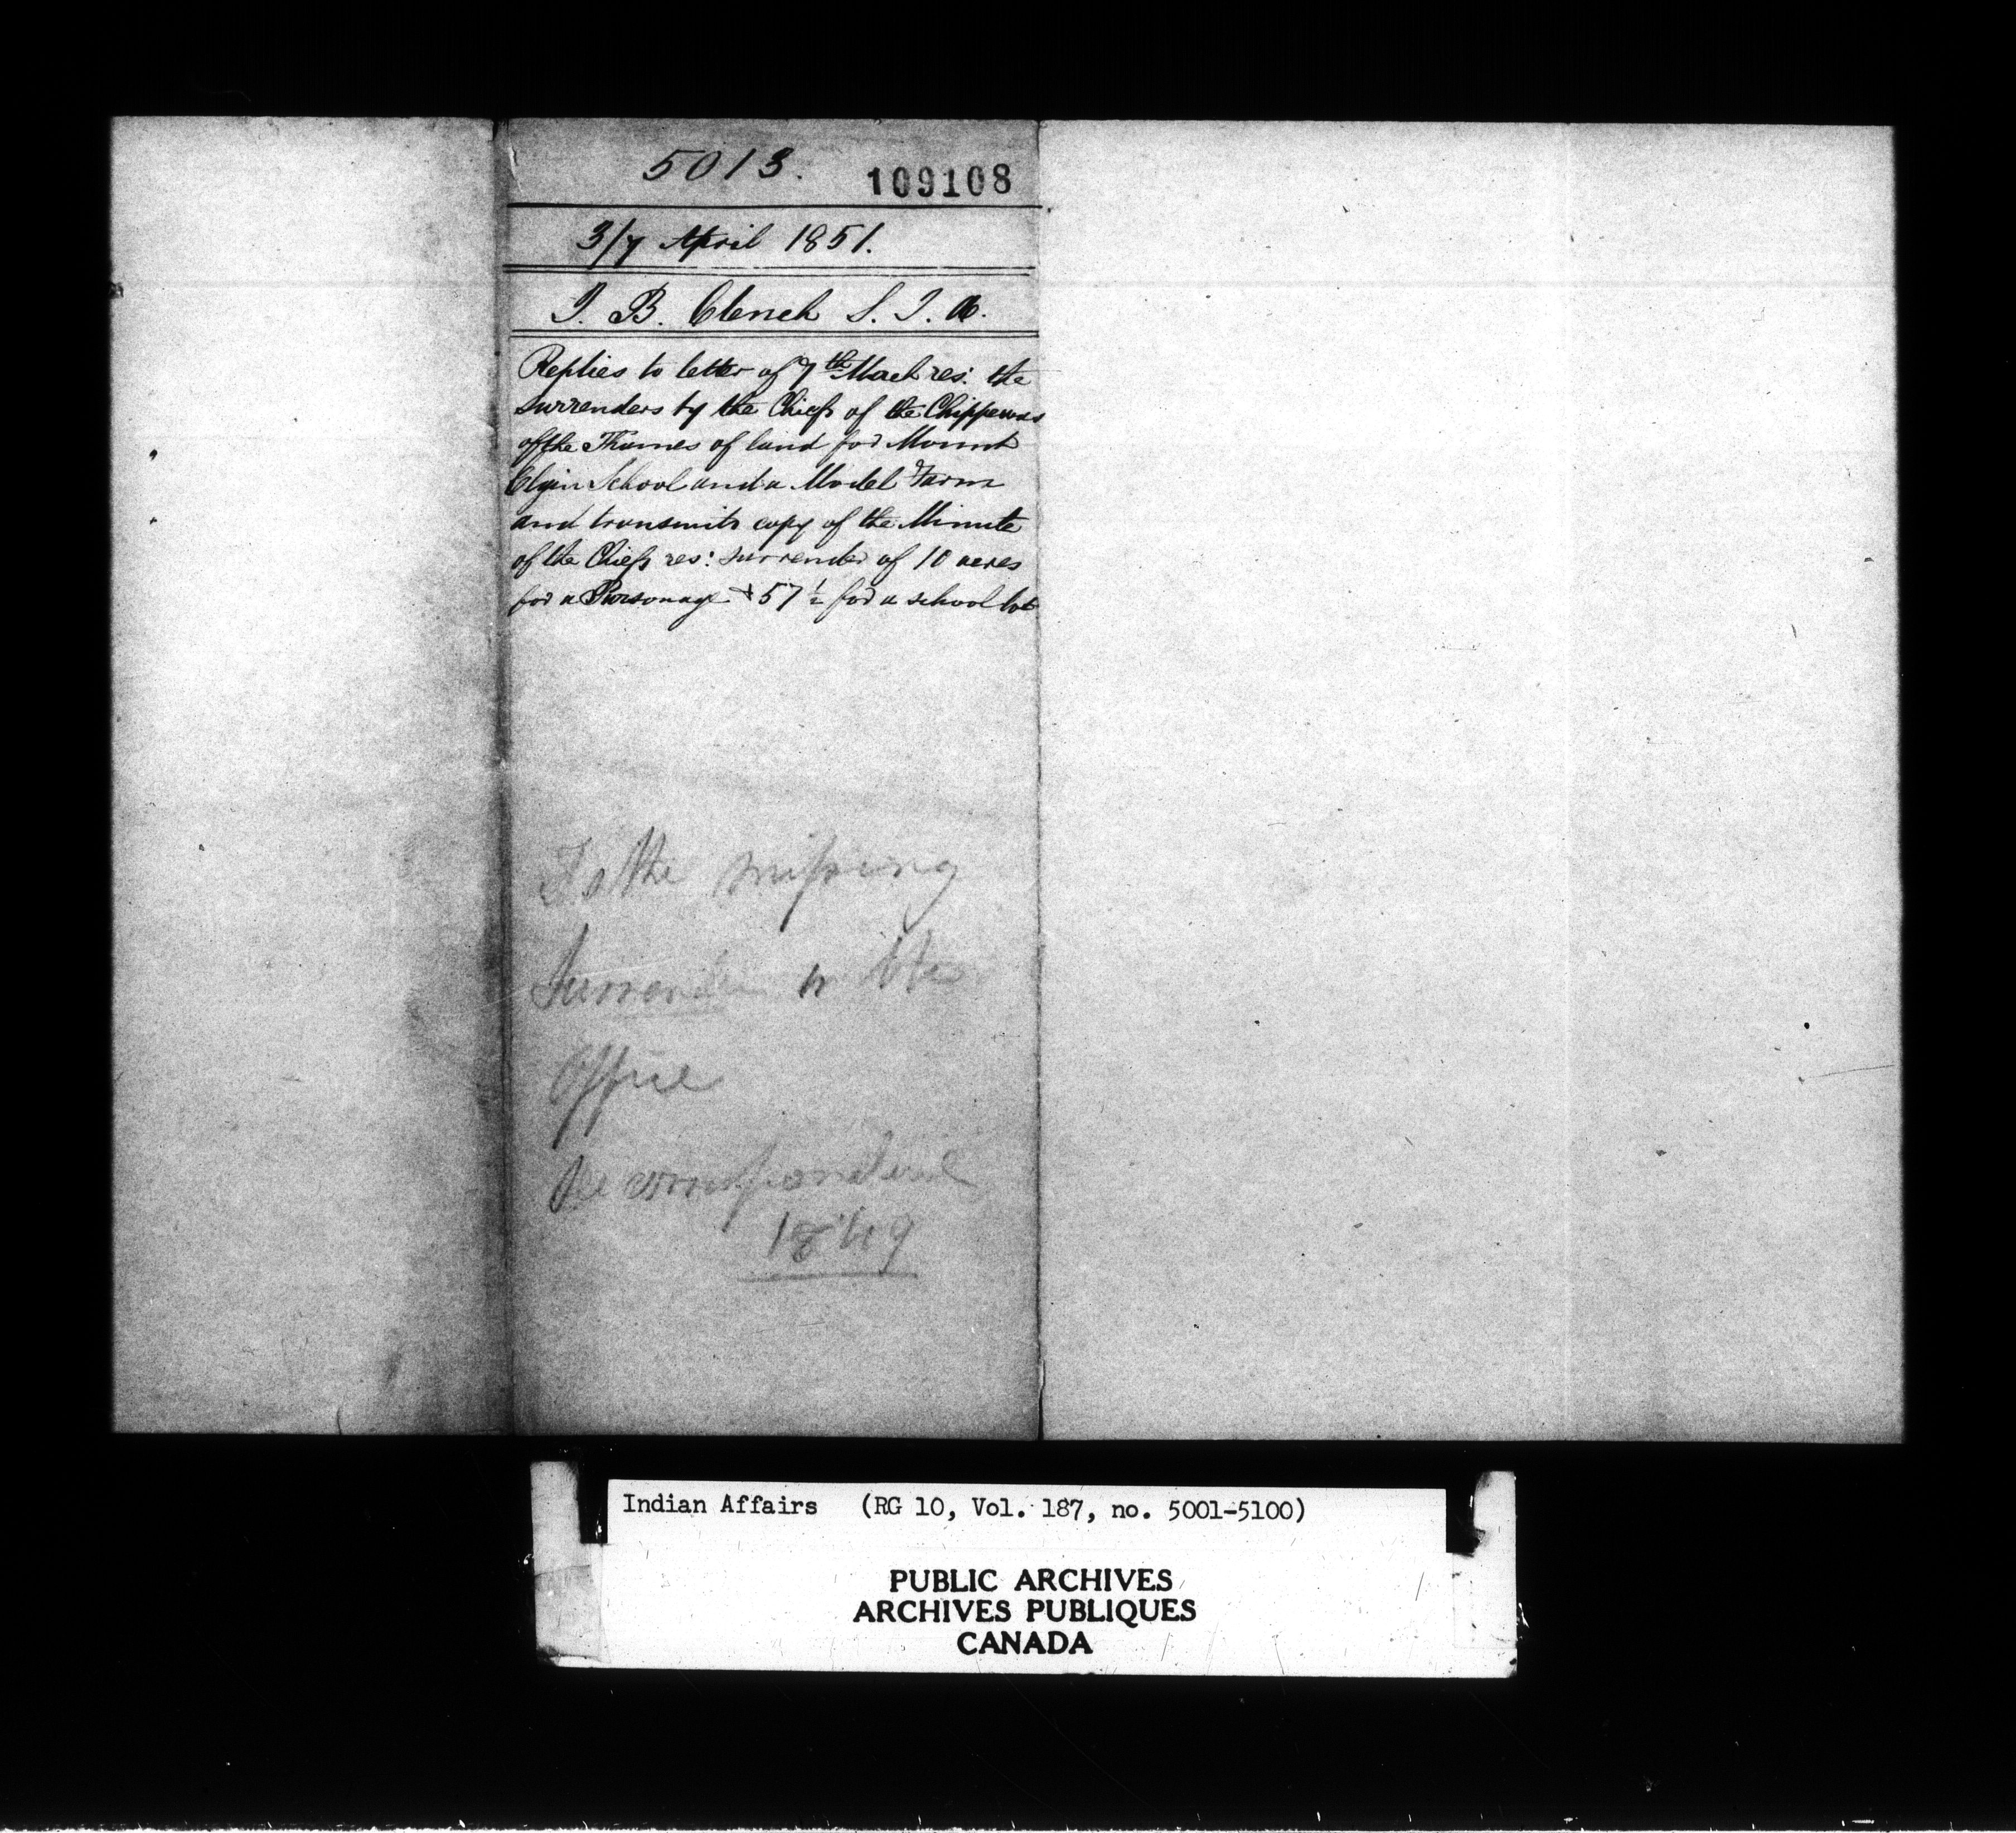 5013.
109108
3/7 April 1851.
J. B. Clench S. I. A.
Replies to letter of 7th Mach res: the
surrenders by the Chiefs of the Chippewas
of the Thames of land for Mount
Elgin School and a Model Farm
and transmits copy of the Minute
of the Chiefs res: surrender of 10 acres
for a Parsonage & 57 ½ for a school lot
Is the missing
Surrender in the
Office
See correspondence
1849
Indian Affairs (RG 10, Vol. 187, no. 5001-5100)
PUBLIC ARCHIVES
ARCHIVES PUBLIQUES
CANADA